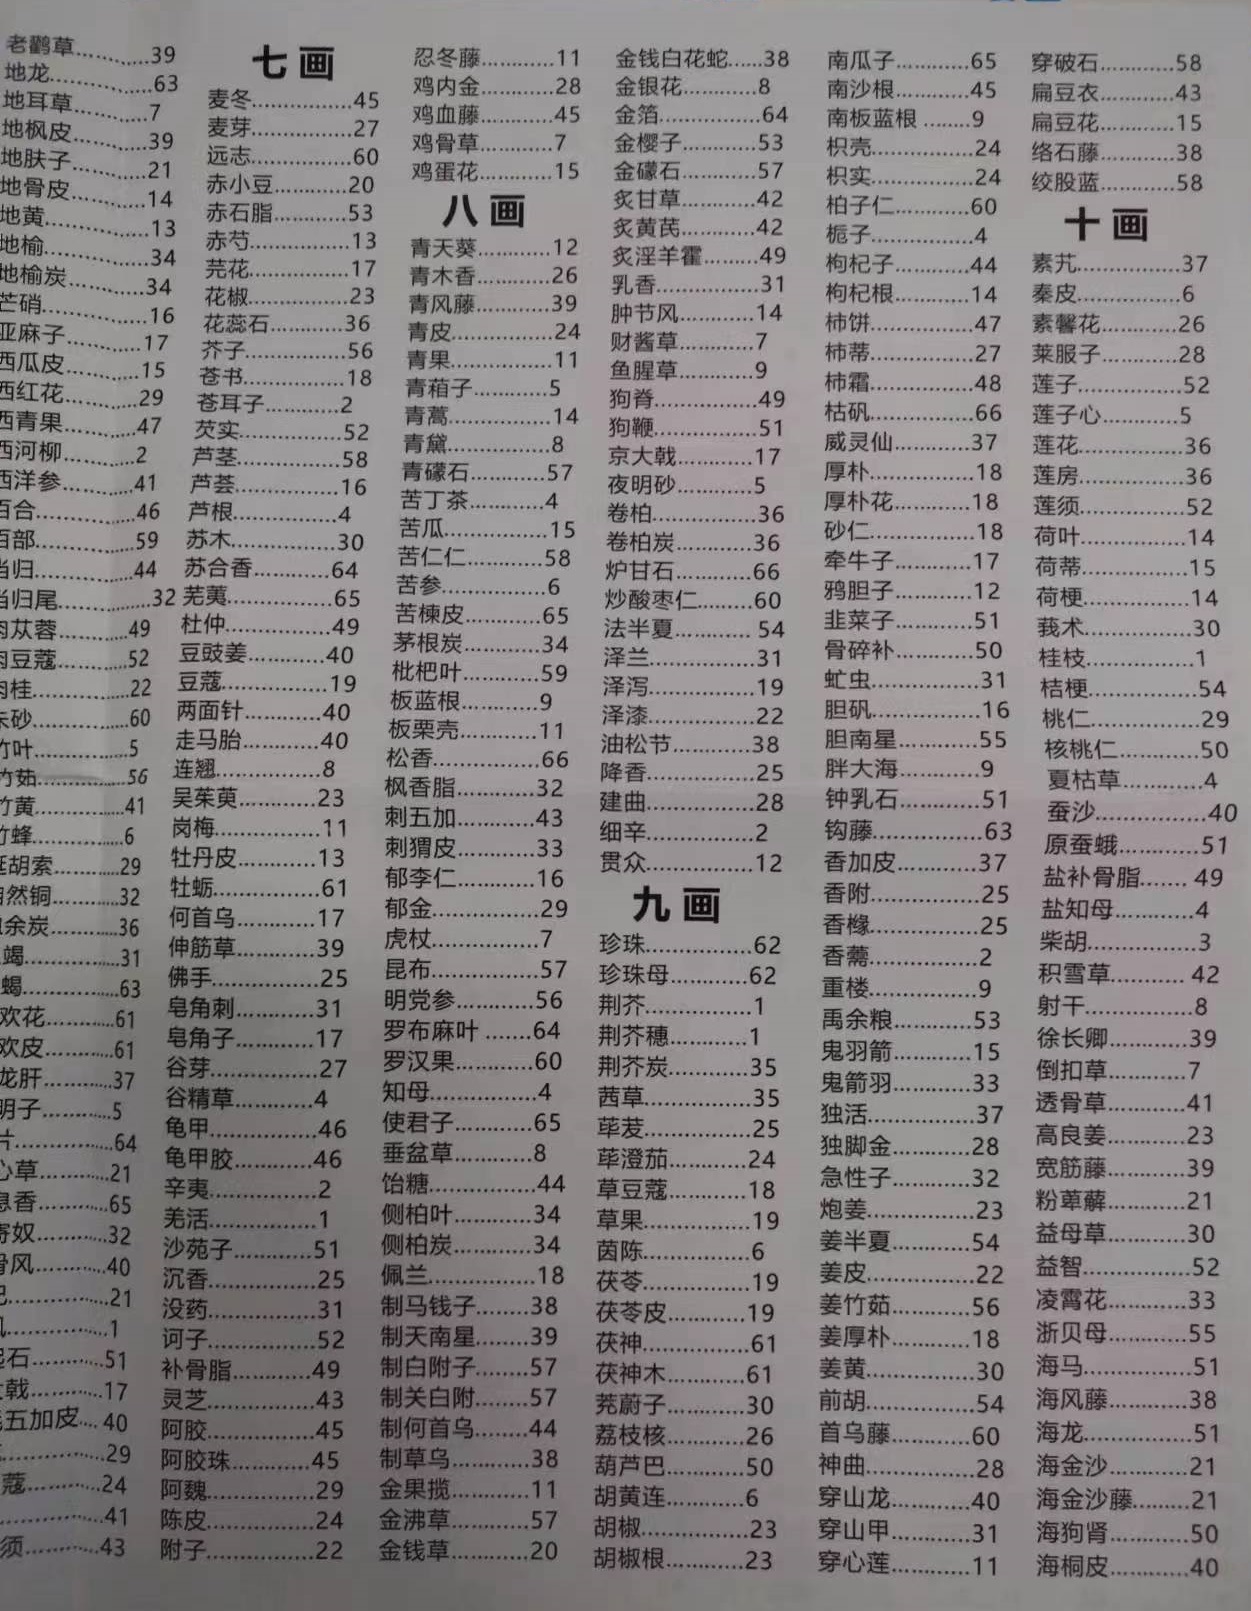 老鹳草......39
地龙......63
地耳草......7
地枫皮......39
地肤子......21
地骨皮......14
地黄......13
地榆......34
地榆炭......34
芒硝......16
亚麻子......17
西瓜皮......15
西红花......29
西青果......47
西河柳......2
西洋参......41
百合......46
百部......59
当归......44
当归尾......32
肉苁蓉......49
肉豆蔻......52
肉桂......22
朱砂......60
竹叶......5
竹茹......56
竹黄......41
竹蜂......6
延胡索......29
自然铜......32
余炭......36
蝎......31
蝎......63
欢花......61
欢皮......61
龙肝......37
明子......5
片......64
心草......21
息香......65
寄奴......32
骨风......40
......21
......1
起石......51
大戟......17
五加皮....40
......29
蔻......24
......41
须......43
七画
麦冬......45
麦芽......27
远志......60
赤小豆......20
赤石脂......53
赤芍......13
芫花......17
花椒......23
花蕊石......36
芥子......56
苍书......18
苍耳子......2
芡实......52
芦茎......58
芦荟......16
芦根......4
苏木......30
苏合香......64
芜荑......65
杜仲......49
豆豉姜......40
豆蔻......19
两面针......40
走马胎......40
连翘......8
吴茱萸......23
岗梅......11
牡丹皮......13
牡蛎......61
何首乌......17
伸筋草......39
佛手......25
皂角刺......31
皂角子......17
谷芽......27
谷精草......4
龟甲......46
龟甲胶......46
辛夷......2
羌活......1
沙苑子......51
沉香......25
没药......31
诃子......52
补骨脂......49
灵芝......43
阿胶......45
阿胶珠......45
阿魏......29
陈皮......24
附子......22
忍冬藤......11
鸡内金......28
鸡血藤......45
鸡骨草......7
鸡蛋花......15
八画
青天葵......12
青木香......26
青风藤......39
青皮......24
青果......11
青葙子......5
青蒿......14
青黛......8
青礞石......57
苦丁茶......4
苦瓜......15
苦仁仁......58
苦参......6
苦楝皮......65
茅根炭......34
枇杷叶......59
板蓝根......9
板栗壳......11
松香......66
枫香脂......32
刺五加......43
刺猬皮......33
郁李仁......16
郁金......29
虎杖......7
昆布......57
明党参......56
罗布麻叶......64
罗汉果......60
知母......4
使君子......65
垂盆草......8
饴糖......44
侧柏叶......34
侧柏炭......34
佩兰......18
制马钱子......38
制天南星......39
制白附子......57
制关白附......57
制何首乌......44
制草乌......38
金果揽......11
金沸草......57
金钱草......20
金钱白花蛇......38
金银花......8
金箔......64
金樱子......53
金礞石......57
炙甘草......42
炙黄芪......42
炙淫羊霍......49
乳香......31
肿节风......14
财酱草......7
鱼腥草......9
狗脊......49
狗鞭......51
京大戟......17
夜明砂......5
卷柏......36
卷柏炭......36
炉甘石......66
炒酸枣仁......60
法半夏......54
泽兰......31
泽泻......19
泽漆......22
油松节......38
降香......25
建曲......28
细辛......2
贯众......12
九画
珍珠......62
珍珠母......62
荆芥......1
荆芥穗......1
荆芥炭......35
茜草......35
荜茇......25
荜澄茄......24
草豆蔻......18
草果......19
茵陈......6
茯苓......19
茯苓皮......19
茯神......61
茯神木......61
茺蔚子......30
荔枝核......26
葫芦巴......50
胡黄连......6
胡椒......23
胡椒根......23
南瓜子......65
南沙根......45
南板蓝根......9
枳壳......24
枳实......24
柏子仁......60
栀子......4
枸杞子......44
枸杞根......14
柿饼......47
柿蒂......27
柿霜......48
枯矾......66
威灵仙......37
厚朴......18
厚朴花......18
砂仁......18
牵牛子......17
鸦胆子......12
韭菜子......51
骨碎补......50
虻虫......31
胆矾......16
胆南星......55
胖大海......9
钟乳石......51
钩藤......63
香加皮......37
香附......25
香橼......25
香薷......2
重楼......9
禹余粮......53
鬼羽箭......15
鬼箭羽......33
独活......37
独脚金......28
急性子......32
炮姜......23
姜半夏......54
姜皮......22
姜竹茹......56
姜厚朴......18
姜黄......30
前胡......54
首乌藤......60
神曲......28
穿山龙......40
穿山甲......31
穿心莲......11
穿破石......58
扁豆衣......43
扁豆花......15
络石藤......38
绞股蓝......58
十画
素艽......37
秦皮......6
素馨花......26
莱服子......28
莲子......52
莲子心......5
莲花......36
莲房......36
莲须......52
荷叶......14
荷蒂......15
荷梗......14
莪术......30
桂枝......1
桔梗......54
桃仁......29
核桃仁......50
夏枯草......4
蚕沙......40
原蚕蛾......51
盐补骨脂......49
盐知母......4
柴胡......3
积雪草......42
射干......8
徐长卿......39
倒扣草......7
透骨草......41
高良姜......23
宽筋藤......39
粉萆薢......21
益母草......30
益智......52
凌霄花......33
浙贝母......55
海马......51
海风藤......38
海龙......51
海金沙......21
海金沙藤......21
海狗肾......50
海桐皮......40